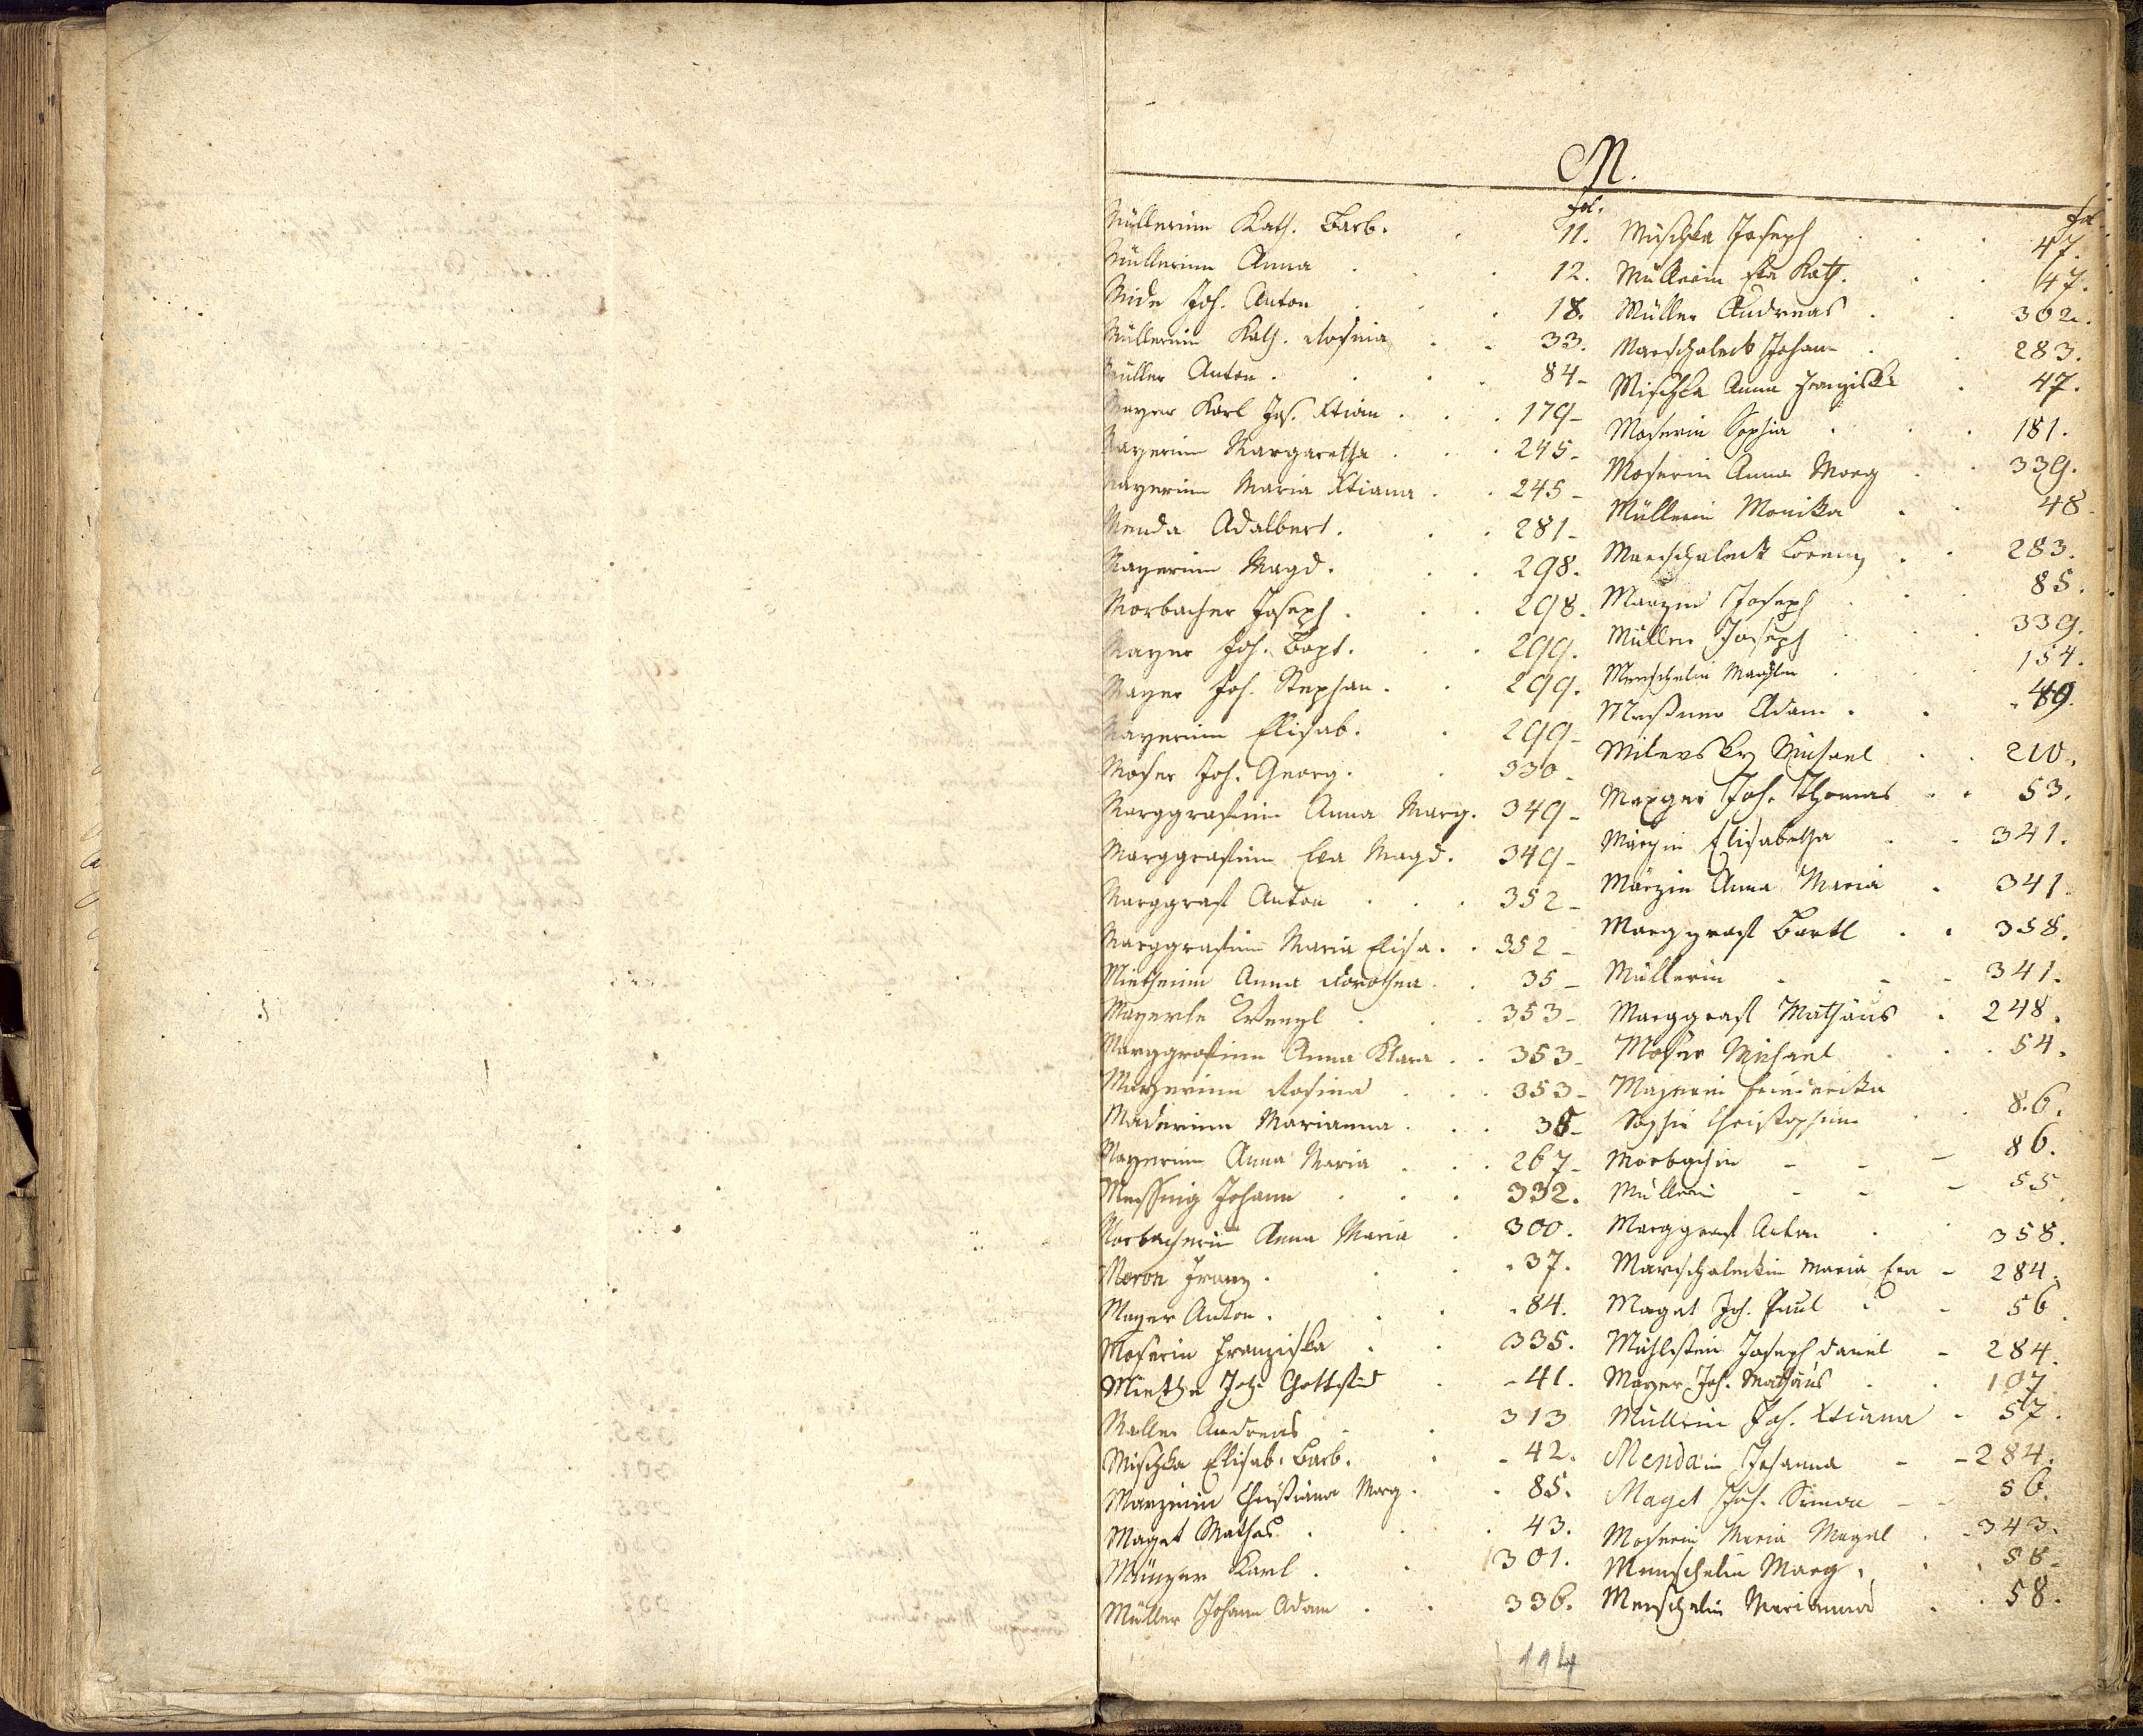 M.
fol.
Müllerinn Kath. Barb. 11.
Müllerinn Anna 12.
Mide Joh. Anton 18.
Müllerinn Kath. Rosina 33.
Müller Anton 84
Mayer Karl Jos. Xtian 179
Mayerinn Margaretha 245
Mayerinn Maria Xtiana 245
Menda Adalbert 281
Mayerinn Magd. 298.
Morbacher Joseph 298.
Mayer Joh. Bapt. 299.
Mayer Joh. Stephan 299.
Mayerinn Elisab. 299
Moser Joh. Georg 330
Marggrafinn Anna Marg. 349
Marggrafinn Eva Magd. 349
Marggraf Anton 352
Marggrafinn Maria Elisa. 352
Mietheinn Anna Dorothea 35
Mayerle Wenzl 353
Marggrafinn Anna Klara 353
Mayerinn Rosina 353
Maderinn Marianna 35
Mayerinn Anna Maria 267
Messnig Johann 332.
Morbacherin Anna Maria 300.
Meron Franz 37.
Mayer Anton 84.
Moserin Franziska 335.
Miethe Joh. Gottfrid 41.
Maller Andreas 313
Mischka Elisab. Barb. 42.
Marzinin Christiana Marg. 85.
Maget Mathes 43.
Münzer Karl 301.
Müller Johann Adam 336.
fol.
Mischka Joseph 47.
Müllerin Eva Kath. 47.
Müller Andreas 302.
Marschaleck Johann 283.
Mischka Anna Franziska 47.
Moserin Sophia 181.
Moserin Anna Marg 339.
Müllerin Monika 48
Marschaleck Lorenz 283.
Joseph 85.
Müller Joseph 339.
Menschelin 154.
Meßner Adam 49.
Milevsky Michael 210.
Joh. Thomas 53.
Elisabetha 341.
Märzin Anna Maria 341.
Marggraf Bartl 358.
Müllerin 341.
Marggraf Mathäus 248.
Moser Michael 54.
Majerin Friderika
Sophie Christophine 86.
Morbachin 86.
Müllerin 55
Marggraf Anton 358.
Marschaleckin Maria Eva 284.
Maget Joh. Paul 56
Mühlstein Joseph Daniel 284.
Mayer Joh. Mathäus 107
Müllerin Joh. Xtiana 57.
Mendain Johanna 284.
Maget Joh. Simon 56.
Moserin Maria Magdl 343.
Menschelin Marg. 58
Menschelin Marianna 58.
114